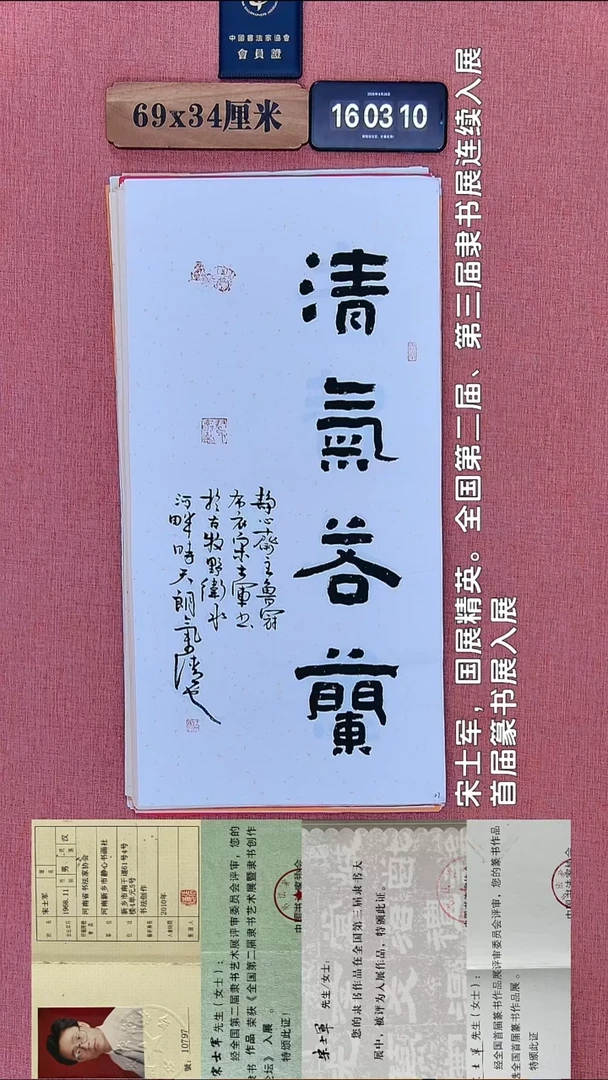 中國書法家協會
會員證
69x34厘米
16 03 10
清氣若蘭
静心齋主魯窮
布衣宋士軍書
於古牧野衛水
河畔時天朗氣清也
宋士军，国展精英。全国第二届、第三届隶书展连续入展
首届篆书展入展
宋士军
男
汉
1968.11
河南省书法家协会
河南新乡市静心书画社
新乡市南干道61号4号
楼4单元5号
书法创作
2010年
號：10797
宋士军 先生（女士）：
经全国第二届隶书艺术展评审委员会评审，您的
隶书 作品 荣获《全国第二届隶书艺术展暨隶书创作
论坛》入展 。
特颁此证！
宋士军 先生/女士：
您的隶书作品在全国第三届隶书大
展中，被评为入展作品，特颁此证。
士军 先生（女士）：
经全国首届篆书作品展评审委员会评审，您的篆书作品
全国首届篆书作品展。
特颁此证